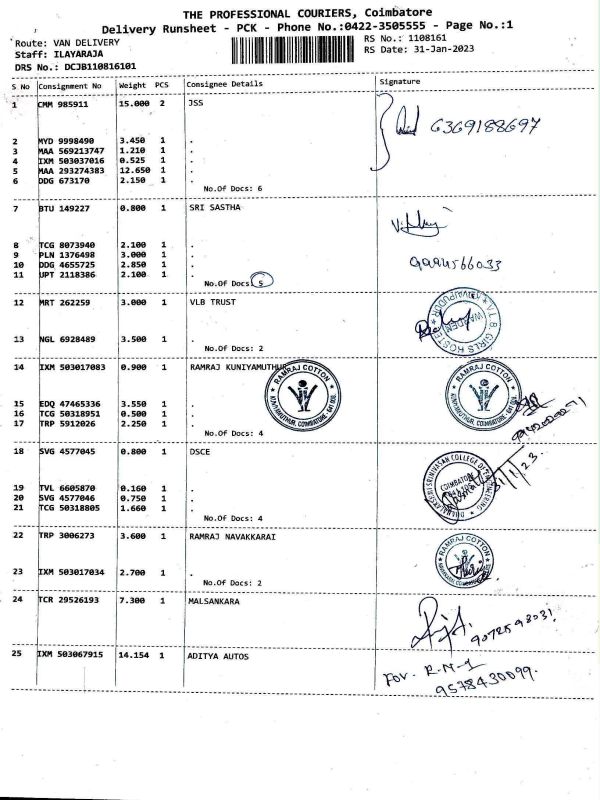 THE PROFESSIONAL COURIERS, Coimbatore
Delivery Runsheet - PCK - Phone No.:0422-3505555 - Page No.:1
Route: VAN DELIVERY RS No.: 1108161
Staff: ILAYARAJA RS Date: 31-Jan-2023
DRS No.: DCJB110816101
S No Consignment No Weight PCS Consignee Details Signature
1 CMM 985911 15.000 2 JSS
6369188697
2 MYD 9998490 3.450 1 .
3 MAA 569213747 1.210 1 .
4 IXM 503037016 0.525 1 .
5 MAA 293274383 12.650 1 .
6 DDG 673170 2.150 1 .
No.Of Docs: 6
7 BTU 149227 0.800 1 SRI SASTHA
8 TCG 8073940 2.100 1 .
9 PLN 1376498 3.000 1 .
10 DDG 4655725 2.850 1 .
11 UPT 2118386 2.100 1 .
9994566033
No.Of Docs: 5
12 MRT 262259 3.000 1 VLB TRUST
V.L.B GIRLS HOSTEL
WARDEN
13 NGL 6928489 3.500 1 .
No.Of Docs: 2
14 IXM 503017083 0.900 1 RAMRAJ KUNIYAMUTHUR
RAMRAJ COTTON
KUNIYAMUTHUR, COIMBATORE - 641 008.
RAMRAJ COTTON
KUNIYAMUTHUR, COIMBATORE - 641 008.
15 EDQ 47465336 3.550 1 .
16 TCG 50318951 0.500 1 .
17 TRP 5912026 2.250 1 .
No.Of Docs: 4
18 SVG 4577045 0.800 1 DSCE
DHANALAKSHMI SRINIVASAN COLLEGE OF ENGINEERING
COIMBATORE
31/1/23.
19 TVL 6605870 0.160 1 .
20 SVG 4577046 0.750 1 .
21 TCG 50318805 1.660 1 .
No.Of Docs: 4
22 TRP 3006273 3.600 1 RAMRAJ NAVAKKARAI
RAMRAJ COTTON
23 IXM 503017034 2.700 1 .
No.Of Docs: 2
24 TCR 29526193 7.300 1 MALSANKARA
9072593031
25 IXM 503067915 14.154 1 ADITYA AUTOS
For. R.M-1
9578430099.